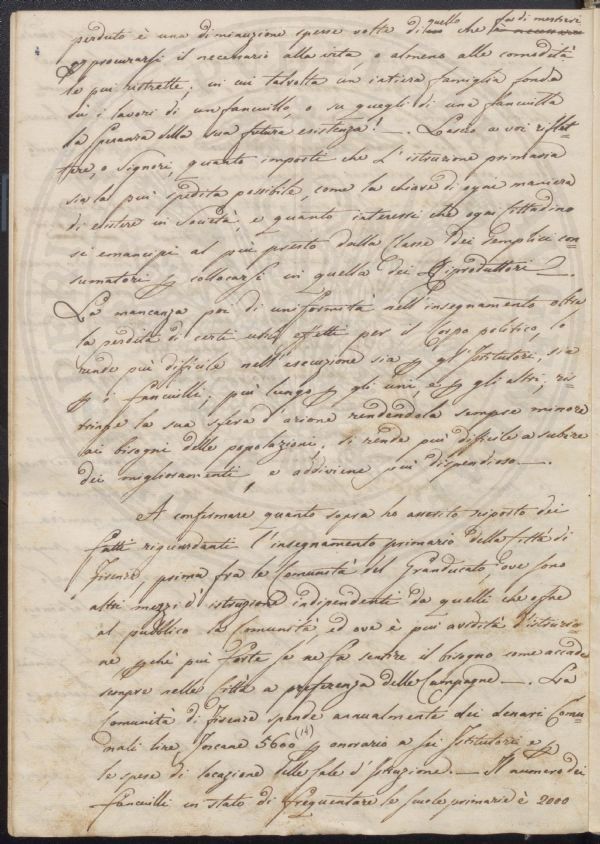 perduto è una diminuzione spesse volte di quello che fa di mestieri
per procurarsi il necessario alla vita, o almeno alle comodità
le più ristrette; in cui talvolta un'intiera famiglia fonda
su i lavori di un fanciullo, o su quegli di una fanciulla
la speranza della sua futura esistenza! —. Lascio a voi riflet-
tere, o Signori, quanto importi che l'istruzione primaria
sia la più spedita possibile, come la chiave di ogni maniera
di esistere in Società, e quanto interessi che ogni Cittadino
si emancipi al più presto dalla classe dei semplici con=
sumatori per collocarsi in quella dei Riproduttori —
La mancanza poi di uniformità nell'insegnamento oltre
la perdita di certi utili effetti per il Corpo politico, lo
rende più difficile nell'esecuzione sia per gl'Istitutori, sia
per i fanciulli; più lungo per gli uni, e per gli altri, ris-
tringe la sua sfera d'azione rendendola sempre minore
ai bisogni delle popolazioni, si rende più difficile a subire
dei miglioramenti, e addiviene più dispendioso —.
A confermare quanto sopra ho asserito risposto dei
fatti riguardanti l'insegnamento primario della Città di
Firenze, prima fra le Comunità del Granducato, ove sono
altri mezzi d'istruzione indipendenti da quelli che offre
al pubblico la Comunità ed ove è più avidità d'istruzio=
ne perchè più forte se ne fa sentire il bisogno come accade
sempre nelle Città a preferenza delle Campagne —. La
Comunità di Firenze spende annualmente dei denari Comu=
nali lire Toscane 5600 (14) per onorario a sei Istitutori e per
le spese di locazione delle Sale d'Istruzione. — Il numero dei
fanciulli in stato di frequentare le scuole primarie è 2000